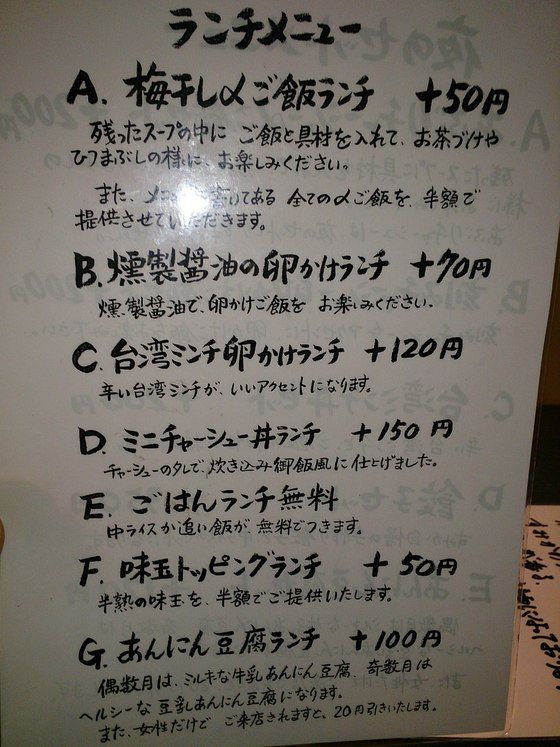 ランチメニュー
A. 梅干し〆ご飯ランチ +50円
残ったスープの中に ご飯と具材を入れて、お茶づけや
ひつまぶしの様に、お楽しみください。
また、メニ いてある 全ての〆ご飯を、半額で
提供させていただきます。
B. 燻製醤油の卵かけランチ +70円
燻製醤油で、卵かけご飯を お楽しみください。
C. 台湾ミンチ卵かけランチ +120円
辛い台湾ミンチが、いいアクセントになります。
D. ミニチャーシュー丼ランチ +150円
チャーシューのタレで、炊き込み御飯風に仕上げました。
E. ごはんランチ無料
中ライスか追い飯が、無料でつきます。
F. 味玉トッピングランチ +50円
半熟の味玉を、半額でご提供いたします。
G. あんにん豆腐ランチ +100円
偶数月は、ミルキな牛乳あんにん豆腐、奇数月は
ヘルシーな豆乳あんにん豆腐になります。
また、女性だけで ご来店されますと、20円引きいたします。